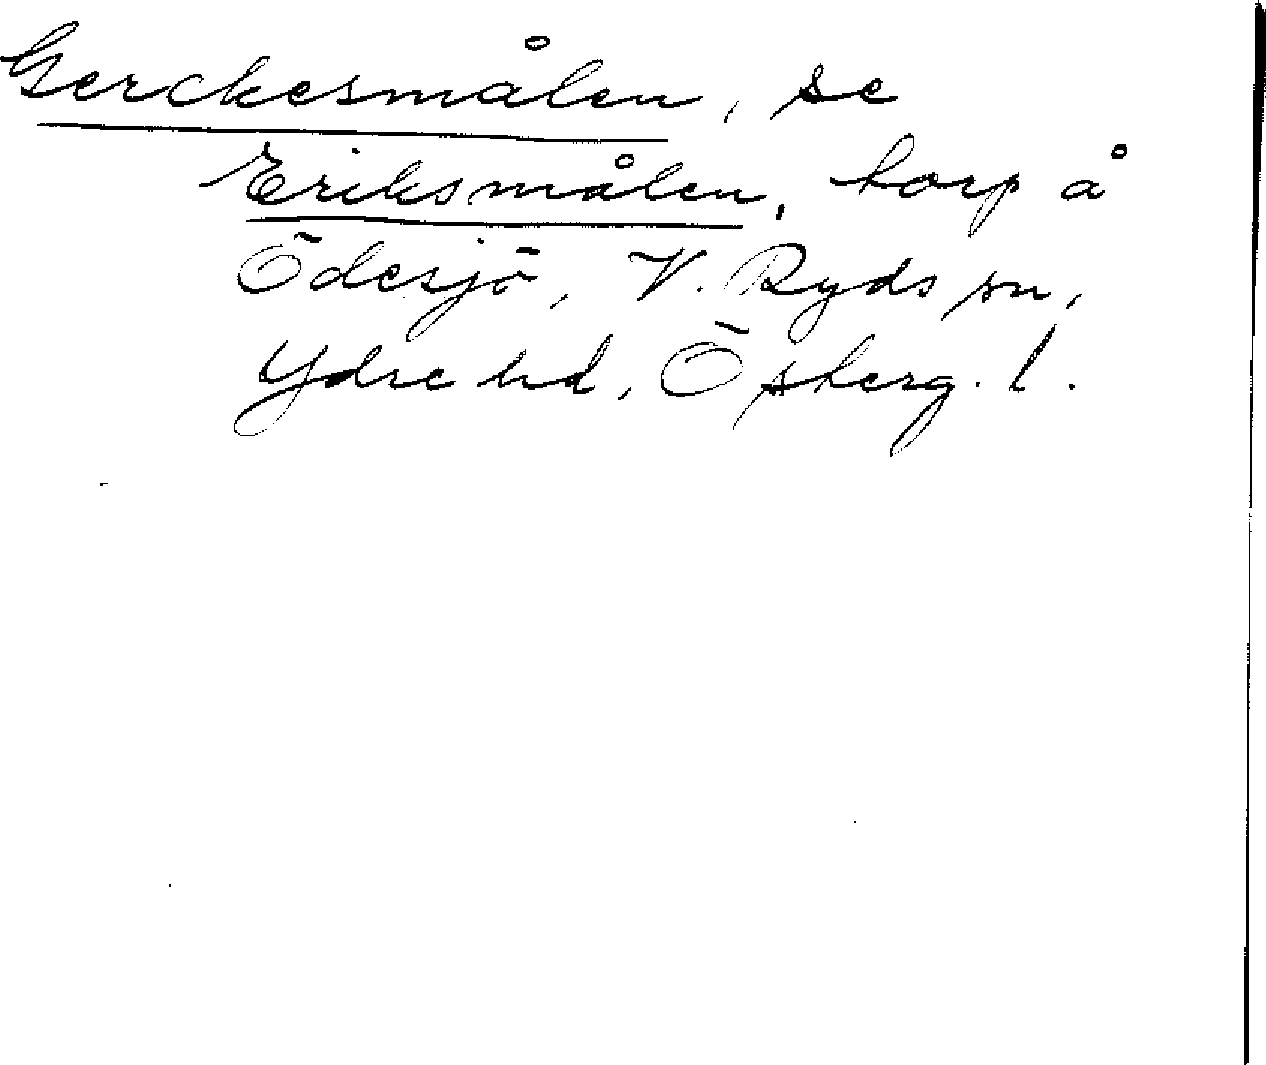 Gerckesmålen, se
Eriksmålen, torp å
Ödesjö, V. Ryds sn,
Ydre hd, Östberg. l.